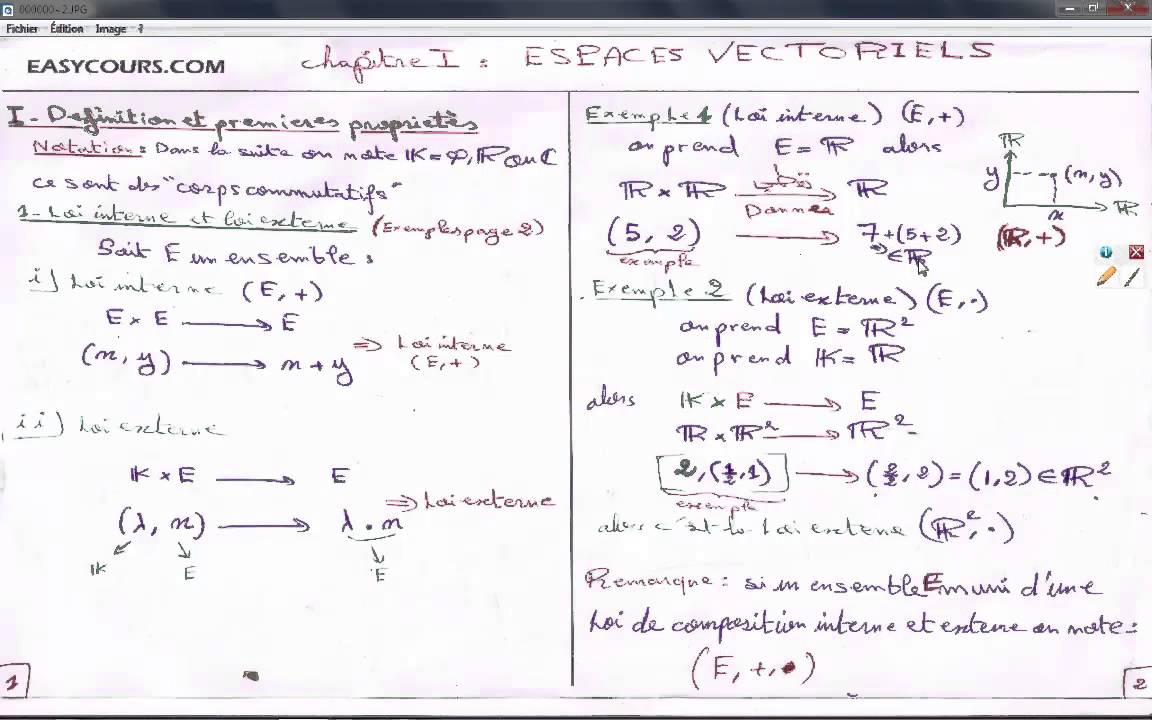 000000-2.JPG
Fichier Édition Image ?
EASYCOURS.COM
chapitre I : ESPACES VECTORIELS
I - Definition et premieres propriétés
Notation : Dans la suite on note K = φ, ℝ ou C
ce sont des "corps commutatifs"
1 - Loi interne et loi externe (Exemples page 2)
Soit E un ensemble :
i) Loi interne (E, +)
E × E → E
(x, y) → x + y
⇒ Loi interne
(E, +)
ii) Loi externe
K × E → E
(λ, x) → λ . x
⇒ Loi externe
K E E
1
Exemple 1 (Loi interne) (E, +)
on prend E = ℝ alors
ℝ × ℝ → ℝ
Donnée
(5, 2) → 7 = (5 + 2)
exemple
∈ ℝ
(ℝ, +)
ℝ
y (x, y)
x ℝ
Exemple 2 (Loi externe) (E, .)
on prend E = ℝ²
on prend K = ℝ
alors K × E → E
ℝ × ℝ² → ℝ²
2, (1/2, 1) → (2/2, 2) = (1, 2) ∈ ℝ²
exemple
alors c'est la Loi externe (ℝ², .)
Remarque : si un ensemble E muni d'une
Loi de composition interne et externe on note :
(E, +, •)
2